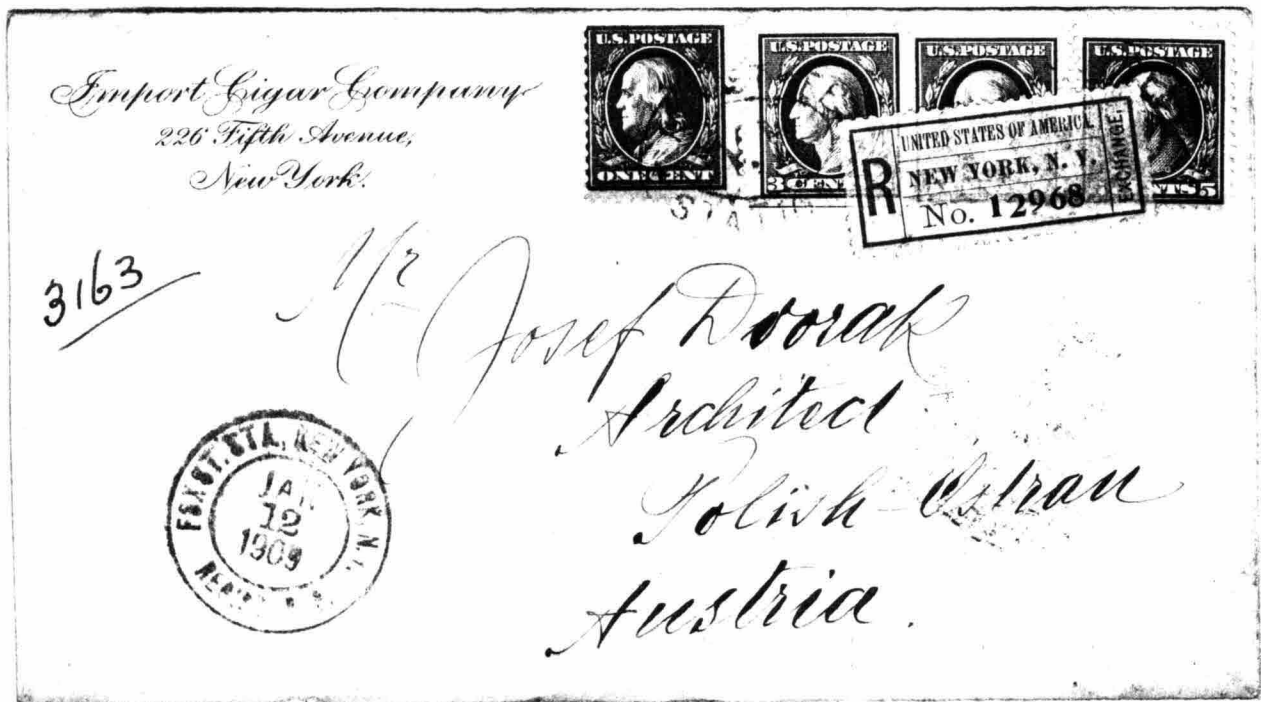 Import Cigar Company
226 Fifth Avenue,
New York.
U.S. POSTAGE
ONE CENT
U.S. POSTAGE
3 CEN
U.S. POSTAGE
U.S. POSTAGE
TS 5
R
UNITED STATES OF AMERICA.
NEW YORK, N. Y.
No. 12968
EXCHANGE.
STATIO
3163
Mr Josef Dvorak
Architect
Polish-Ostrau
Austria.
STA. NEW YORK, N.Y.
JAN
12
1909